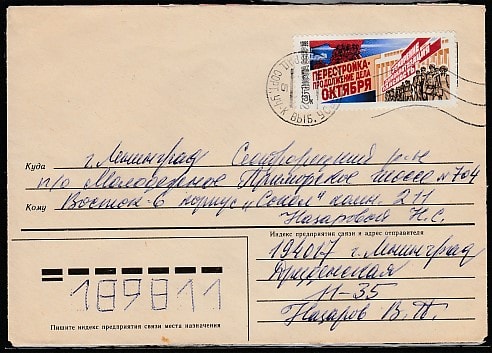 ПЕРЕСТРОЙКА-
ПРОДОЛЖЕНИЕ ДЕЛА
ОКТЯБРЯ
Куда г. Ленинград Сестрорецкий р-он
п/о Молодёжное Приморское шоссе № 704
Кому Восток-6 корпус „Сокол" комн. 211
Назаровой Н.С.
Индекс предприятия связи и адрес отправителя
194017 г. Ленинград
Дрезденская
11-35
Назаров В.П.
189811
Пишите индекс предприятия связи места назначения